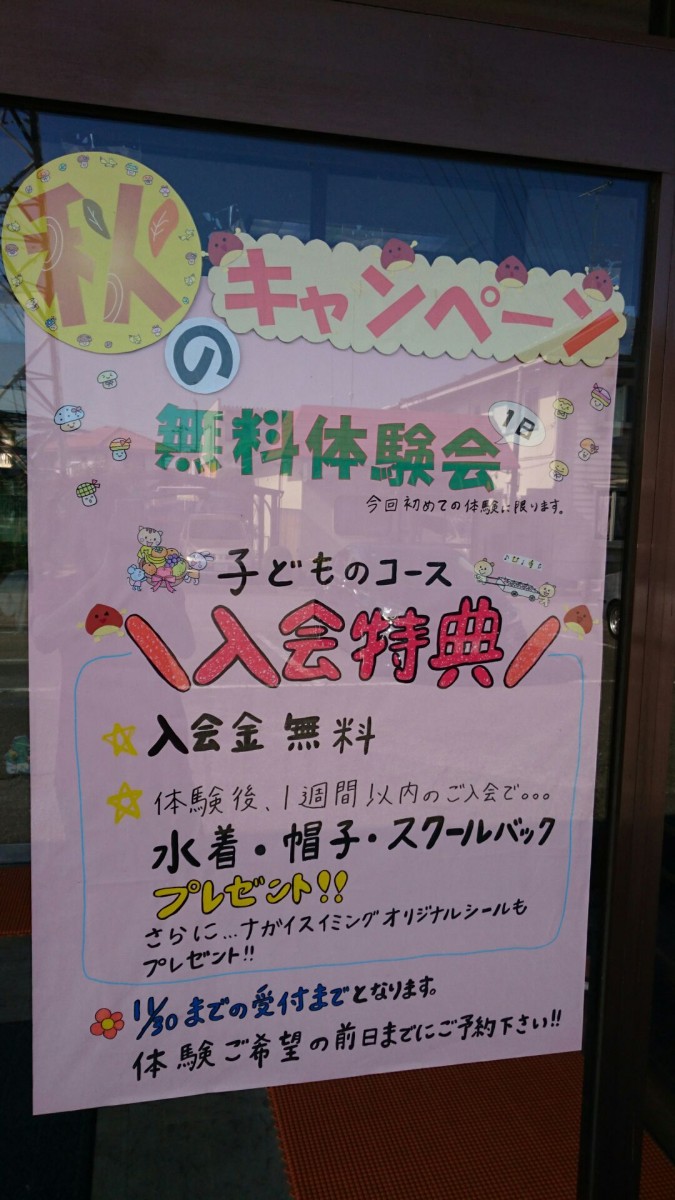 秋のキャンペーン
無料体験会
1日
今回初めての体験に限ります。
子どものコース
\入会特典/
入会金 無料
体験後、1週間以内のご入会で。。。
水着・帽子・スクールバック
プレゼント!!
さらに...ナガイスイミングオリジナルシールも
プレゼント!!
11/30までの受付までとなります。
体験ご希望の前日までにご予約下さい!!